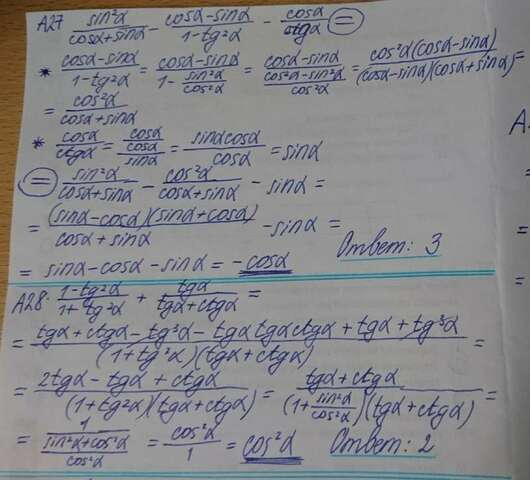 A27 sin²α/(cosα+sinα) - (cosα-sinα)/(1-tg²α) - cosα/ctgα =
* (cosα-sinα)/(1-tg²α) = (cosα-sinα)/(1-sin²α/cos²α) = (cosα-sinα)/((cos²α-sin²α)/cos²α) = cos²α(cosα-sinα)/((cosα-sinα)(cosα+sinα)) =
= cos²α/(cosα+sinα)
* cosα/ctgα = cosα/(cosα/sinα) = sinαcosα/cosα = sinα
= sin²α/(cosα+sinα) - cos²α/(cosα+sinα) - sinα =
= (sinα-cosα)(sinα+cosα)/(cosα+sinα) - sinα =
= sinα-cosα-sinα = -cosα Ответ: 3
A28. (1-tg²α)/(1+tg²α) + tgα/(tgα+ctgα) =
= (tgα+ctgα-tg³α-tgαtgαctgα+tgα+tg³α)/((1+tg²α)(tgα+ctgα)) =
= (2tgα-tgα+ctgα)/((1+tg²α)(tgα+ctgα)) = (tgα+ctgα)/((1+sin²α/cos²α)(tgα+ctgα)) =
= 1/((sin²α+cos²α)/cos²α) = cos²α/1 = cos²α Ответ: 2